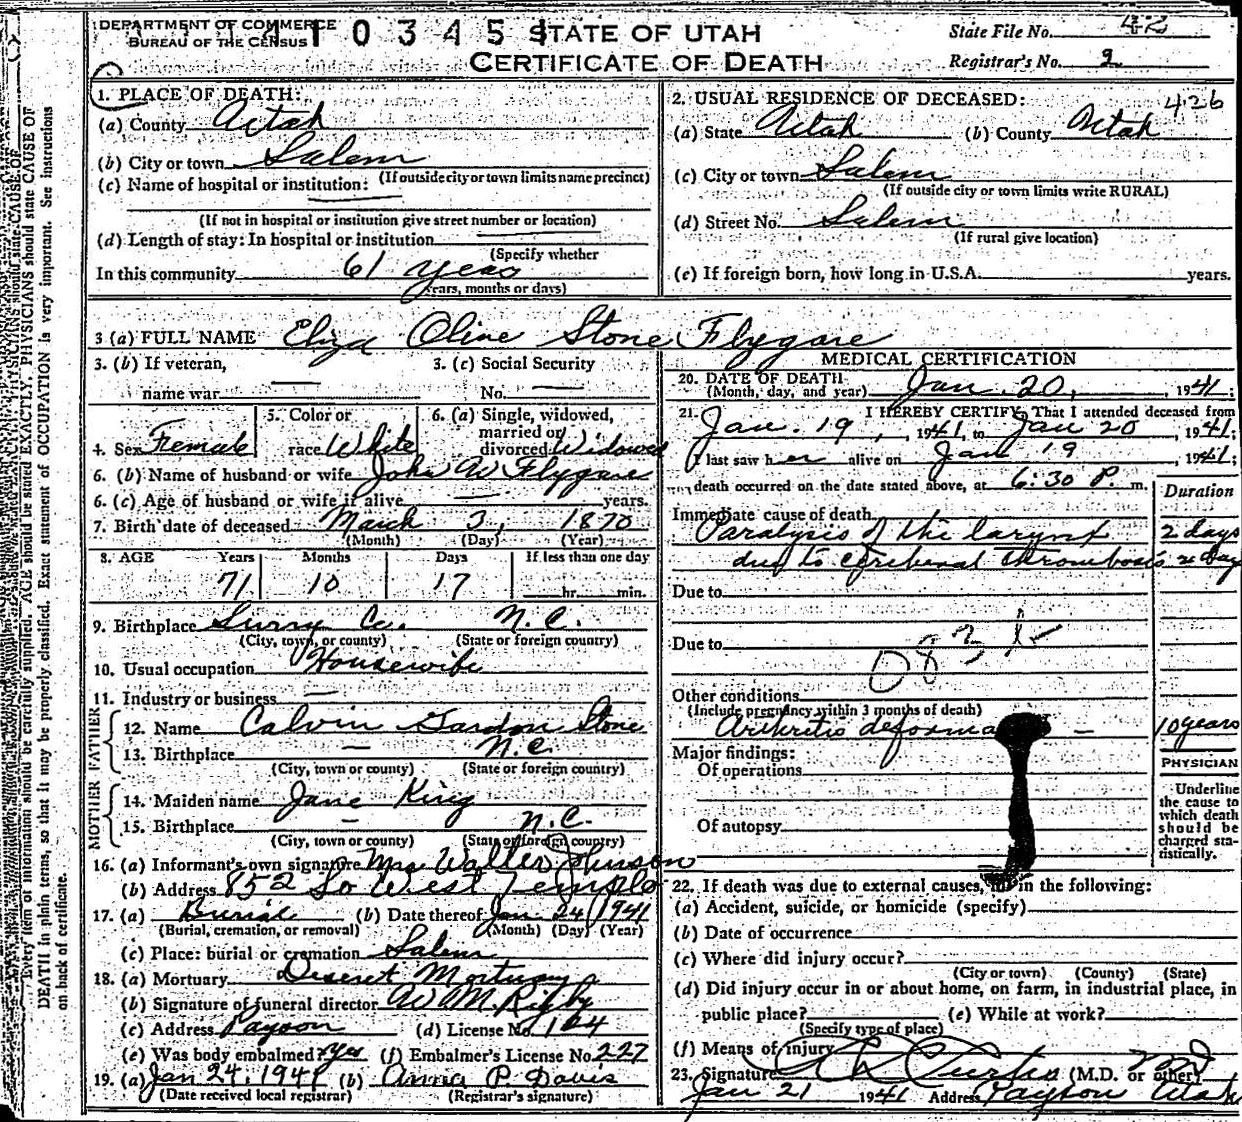 DEPARTMENT OF COMMERCE
BUREAU OF THE CENSUS
1 0 3 4 5
STATE OF UTAH
CERTIFICATE OF DEATH
State File No. 42
Registrar's No. 2
1. PLACE OF DEATH:
(a) County Utah
(b) City or town Salem
(If outside city or town limits name precinct)
(c) Name of hospital or institution:
(If not in hospital or institution give street number or location)
(d) Length of stay: In hospital or institution
(Specify whether
In this community 61 years
years, months or days)
2. USUAL RESIDENCE OF DECEASED: 426
(a) State Utah (b) County Utah
(c) City or town Salem
(If outside city or town limits write RURAL)
(d) Street No. Salem
(If rural give location)
(e) If foreign born, how long in U.S.A. years.
3 (a) FULL NAME Eliza Oline Stone Flygare
3. (b) If veteran,
name war
3. (c) Social Security
No.
4. Sex Female
5. Color or
race White
6. (a) Single, widowed,
married or
divorced Widowed
6. (b) Name of husband or wife John W Flygare
6. (c) Age of husband or wife if alive years.
7. Birth date of deceased March 3, 1870
(Month) (Day) (Year)
8. AGE Years Months Days If less than one day
71 10 17 hr. min.
9. Birthplace Surry Co. N.C.
(City, town, or county) (State or foreign country)
10. Usual occupation Housewife
11. Industry or business
FATHER
12. Name Calvin Gardon Stone
13. Birthplace N.C.
(City, town or county) (State or foreign country)
MOTHER
14. Maiden name Jane King
15. Birthplace N.C.
(City, town or county) (State or foreign country)
16. (a) Informant's own signature Mrs Walter Johnson
(b) Address 852 So West Temple
17. (a) Burial (b) Date thereof Jan 24 1941
(Burial, cremation, or removal) (Month) (Day) (Year)
(c) Place: burial or cremation Salem
18. (a) Mortuary Deseret Mortuary
(b) Signature of funeral director W M Rigby
(c) Address Payson (d) License No. 104
(e) Was body embalmed? Yes (f) Embalmer's License No. 227
19. (a) Jan 24, 1941 (b) Anna P. Davis
(Date received local registrar) (Registrar's signature)
MEDICAL CERTIFICATION
20. DATE OF DEATH
(Month, day, and year) Jan. 20, 1941;
21. I HEREBY CERTIFY, That I attended deceased from
Jan. 19, 1941, to Jan 20, 1941;
I last saw her alive on Jan 19, 1941;
death occurred on the date stated above, at 6:30 P. m.
Duration
Immediate cause of death
Paralysis of the larynx 2 days
due to cerebral thrombosis 2 days
Due to
Due to
083
Other conditions
(Include pregnancy within 3 months of death)
Arthritis deforma 10 years
Major findings:
Of operations
Of autopsy
PHYSICIAN
Underline
the cause to
which death
should be
charged sta-
tistically.
22. If death was due to external causes, in the following:
(a) Accident, suicide, or homicide (specify)
(b) Date of occurrence
(c) Where did injury occur?
(City or town) (County) (State)
(d) Did injury occur in or about home, on farm, in industrial place, in
public place? (e) While at work?
(Specify type of place)
(f) Means of injury
23. Signature Curtis MD (M.D. or other)
Jan 21 1941 Address Payson Utah
Every item of information should be carefully supplied. AGE should be stated EXACTLY. PHYSICIANS should state CAUSE OF
DEATH in plain terms, so that it may be properly classified. Exact statement of OCCUPATION is very important. See instructions
on back of certificate.